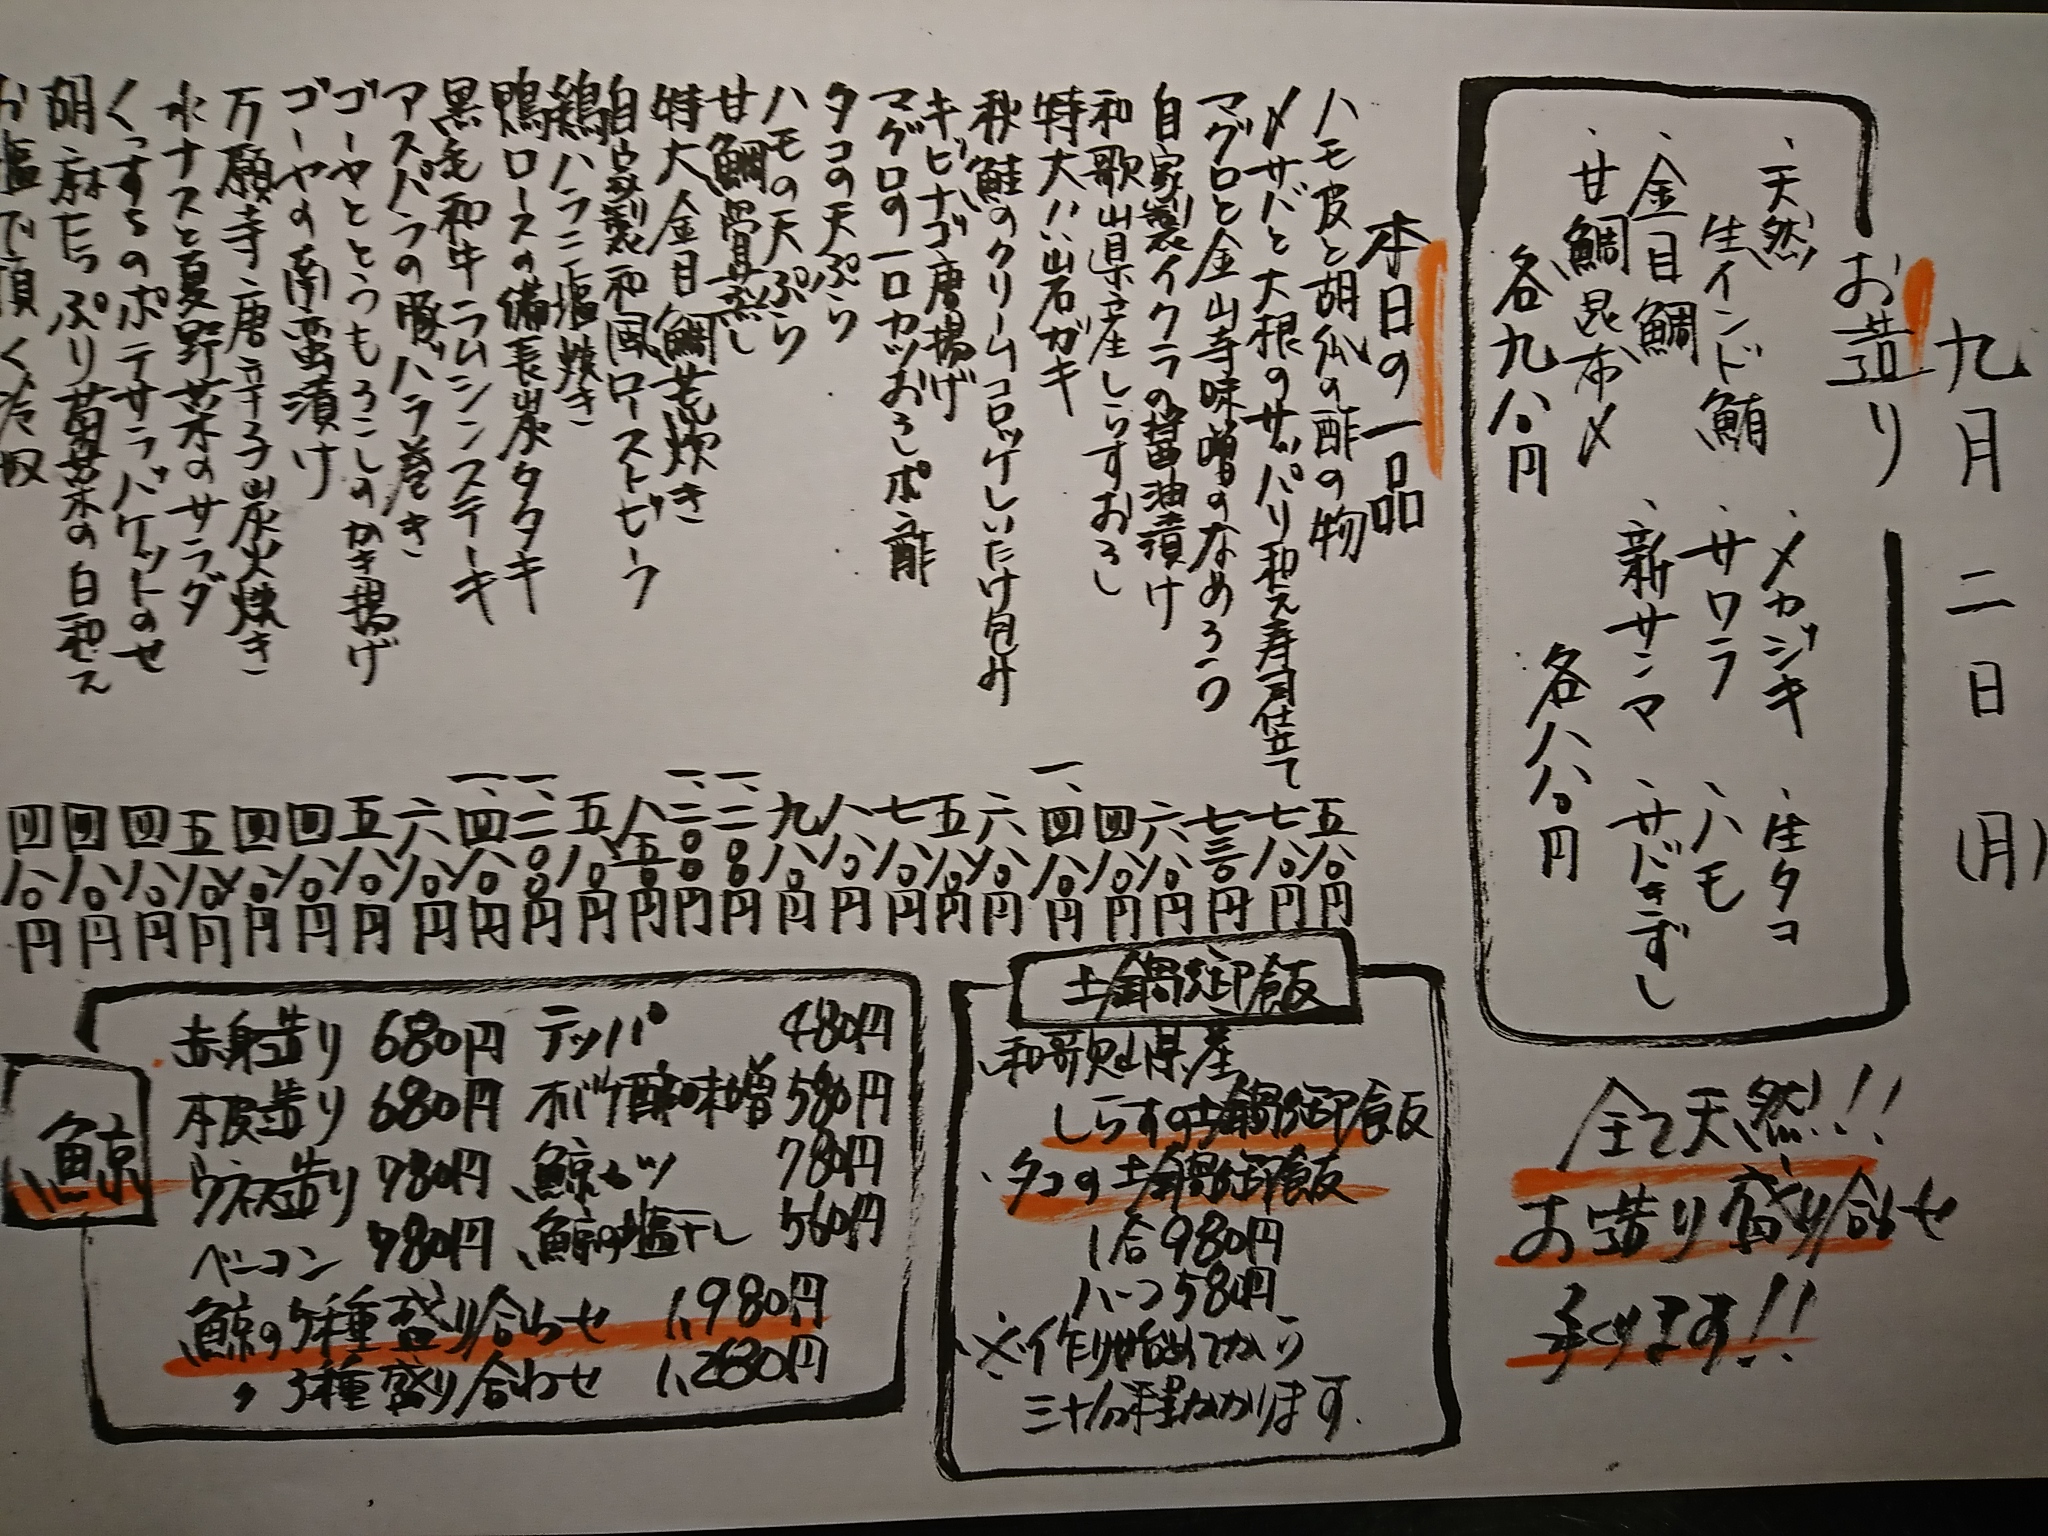 九月二日(月)
お造り
、天然
生インド鮪
、金目鯛
、甘鯛昆布〆
各九八〇円
、メカジキ
、サワラ
、新サンマ
、生タコ
、ハモ
、サバきずし
各八八〇円
全て天然!!
お造り盛り合せ
承ります!!
本日の一品
ハモ皮と胡瓜の酢の物 五八〇円
〆サバと大根のサッパリ和え寿司仕立て 七八〇円
マグロと金山寺味噌のなめろう 七三〇円
自家製イクラの醤油漬け 六八〇円
和歌山県産しらすおろし 四八〇円
特大!!岩ガキ 一、四八〇円
秋鮭のクリームコロッケしいたけ包み 六八〇円
キビナゴ唐揚げ 五八〇円
マグロの一口カツおろしポン酢 七八〇円
タコの天ぷら 八八〇円
ハモの天ぷら 九八〇円
甘鯛骨蒸し 一、二〇〇円
特大金目鯛荒炊き 一、二〇〇円
自家製和風ローストビーフ 八五〇円
鶏ハラミ塩焼き 五八〇円
鴨ロースの備長炭タタキ 一、二〇〇円
黒毛和牛ラムシンステーキ 一、四八〇円
アスパラの豚バラ巻き 六八〇円
ゴーヤととうもろこしのかき揚げ 五八〇円
ゴーヤの南蛮漬け 四八〇円
万願寺唐辛子炭火焼き 四八〇円
水ナスと夏野菜のサラダ 五八〇円
くっすちのポテサラバケットのせ 四八〇円
胡麻たっぷり菊菜の白和え 四八〇円
お塩で頂く冷奴 四八〇円
土鍋御飯
、和歌山県産
しらすの土鍋御飯
、タコの土鍋御飯
1合980円
ハーフ580円
※作り始めてから
三十分程かかります.
鯨
赤身造り 680円 テッパ 480円
本皮造り 680円 オバケ酢味噌 580円
ウネス造り 780円 鯨カツ 780円
ベーコン 780円 鯨の塩干し 560円
鯨の5種盛り合わせ 1,980円
〃3種盛り合わせ 1,280円